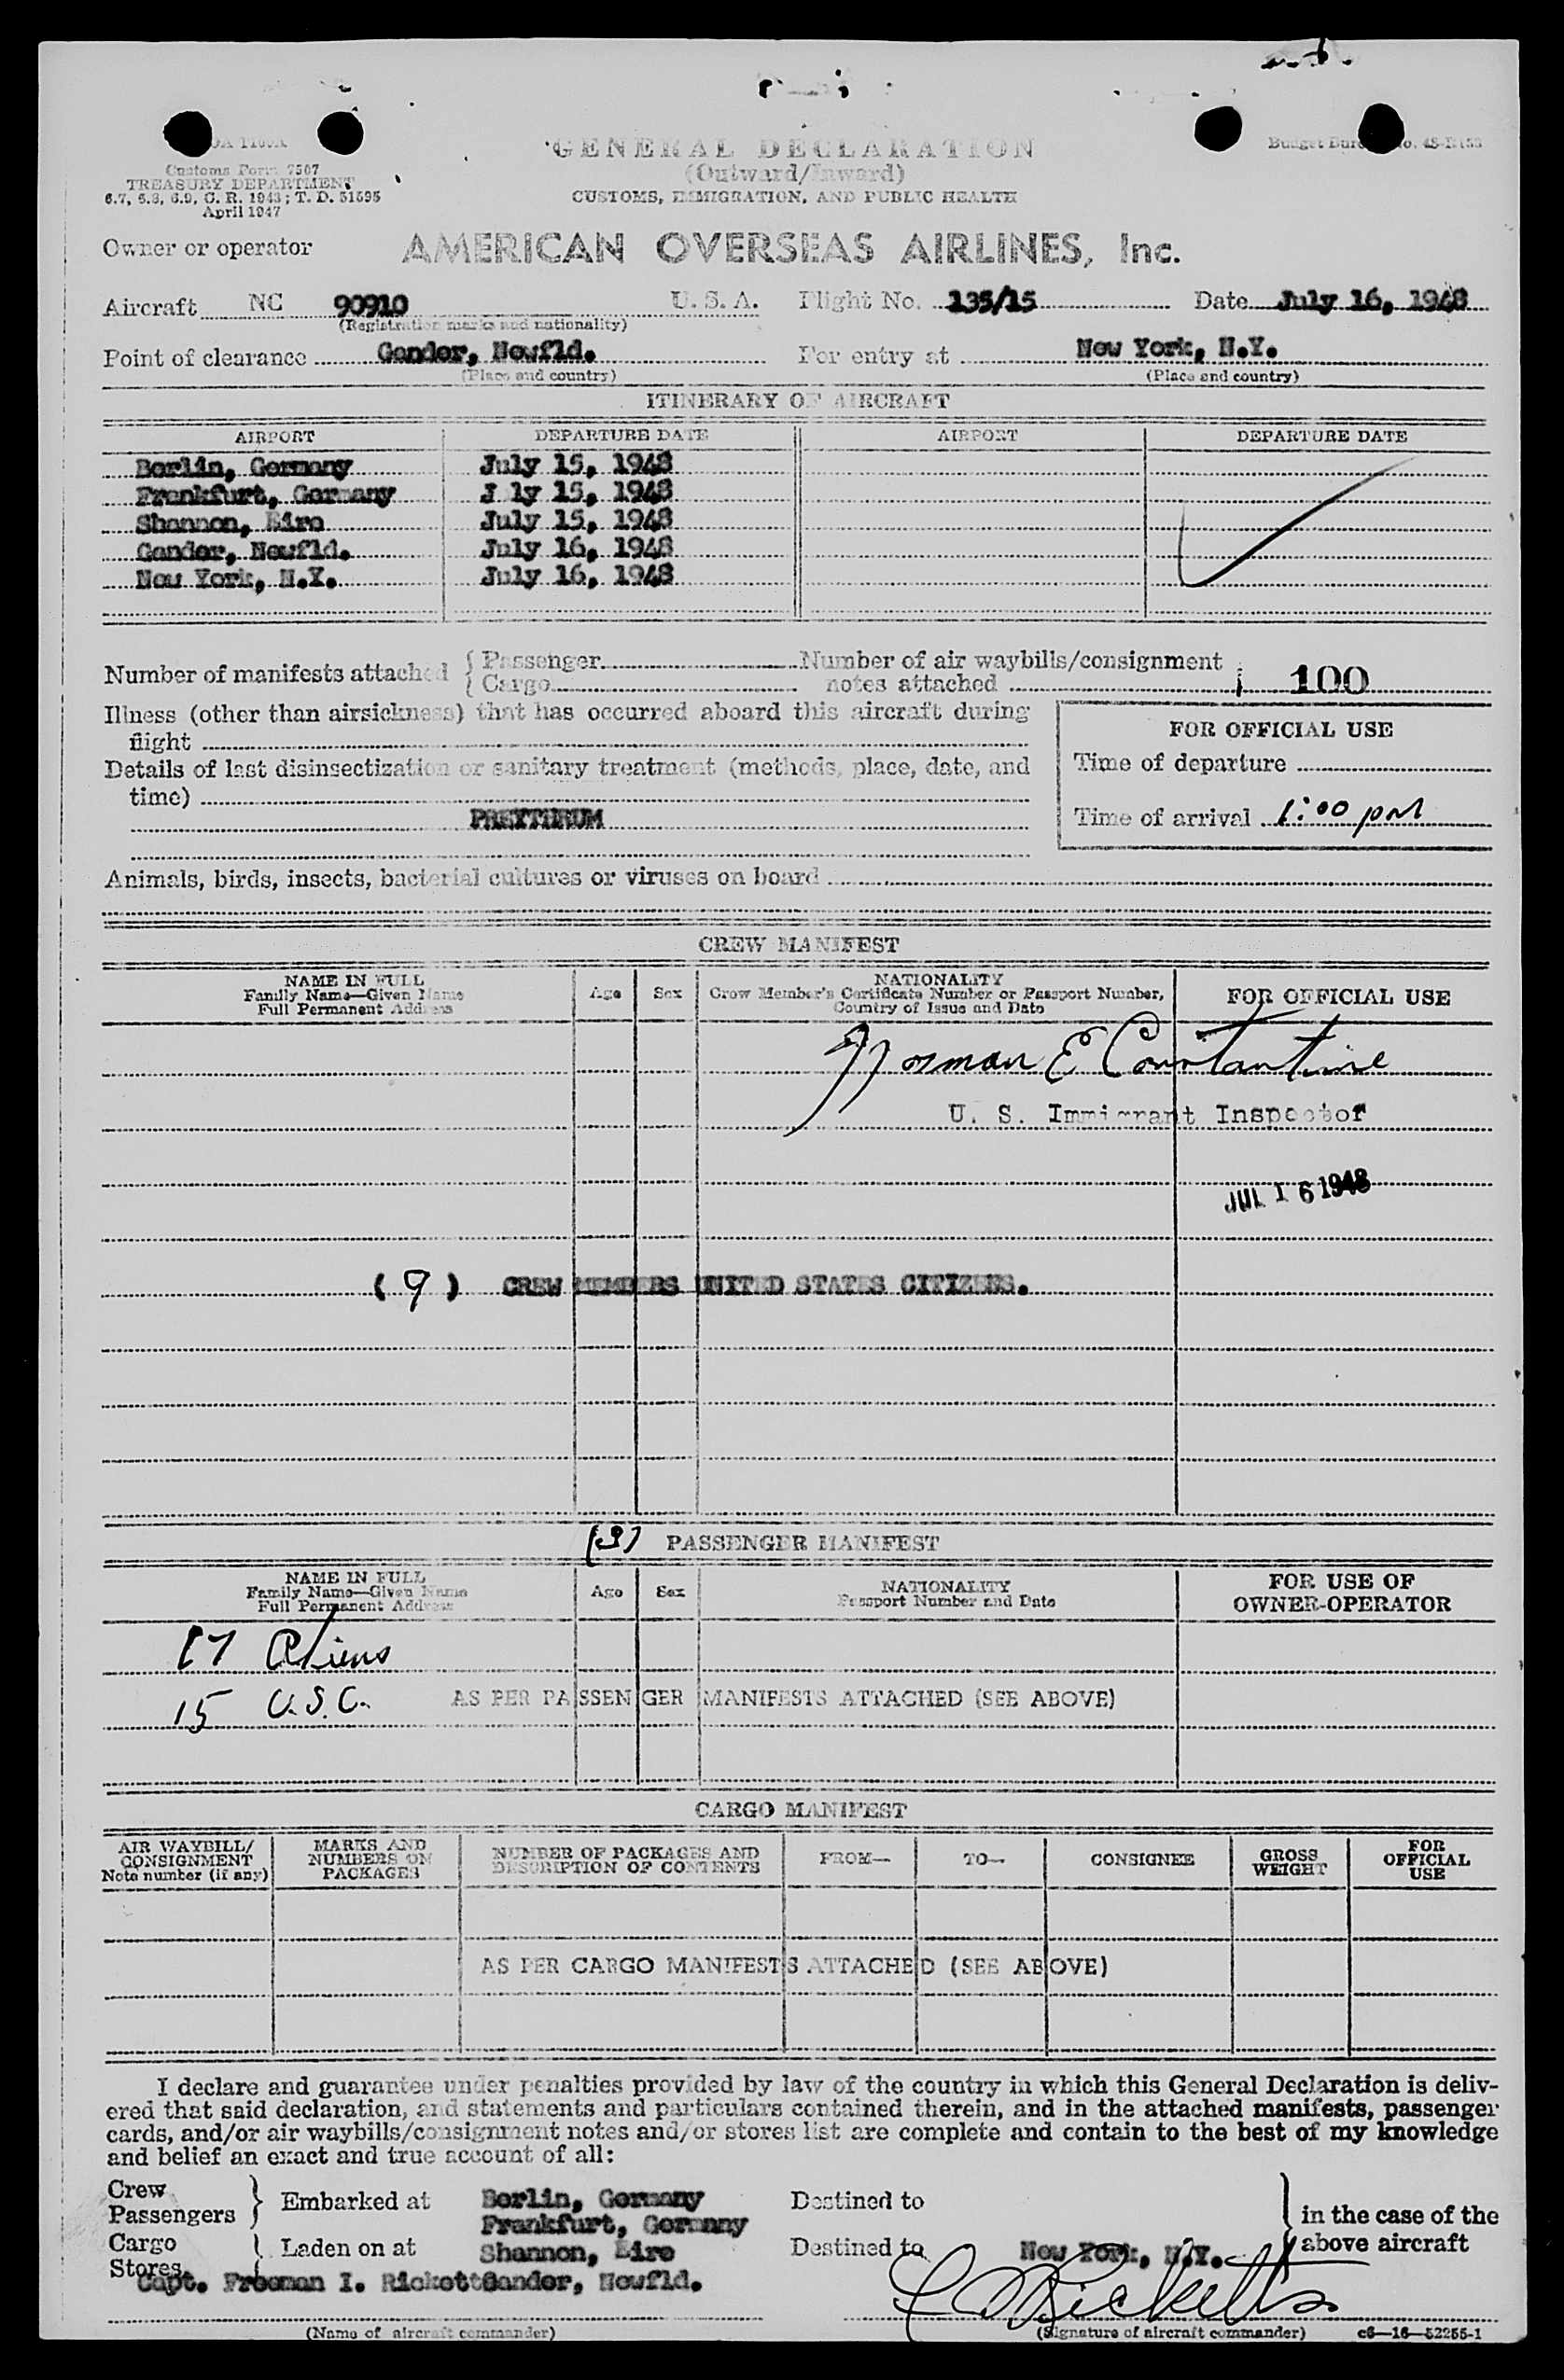 Customs Form 7507
TREASURY DEPARTMENT
6.7, 6.8, 6.9, C. R. 1943; T. D. 51595
April 1947
GENERAL DECLARATION
(Outward/Inward)
CUSTOMS, IMMIGRATION, AND PUBLIC HEALTH
Budget Bureau No.
Owner or operator AMERICAN OVERSEAS AIRLINES, Inc.
Aircraft NC 90910 U. S. A. Flight No. 135/15 Date July 16, 1948
(Registration marks and nationality)
Point of clearance Gander, Newfld. For entry at New York, N.Y.
(Place and country) (Place and country)
ITINERARY OF AIRCRAFT
AIRPORT DEPARTURE DATE AIRPORT DEPARTURE DATE
Berlin, Germany July 15, 1948
Frankfurt, Germany J ly 15, 1948
Shannon, Eire July 15, 1948
Gander, Newfld. July 16, 1948
New York, N.Y. July 16, 1948
Number of manifests attached { Passenger Number of air waybills/consignment
{ Cargo notes attached 100
Illness (other than airsickness) that has occurred aboard this aircraft during
flight
FOR OFFICIAL USE
Details of last disinsectization or sanitary treatment (methods, place, date, and
time)
Time of departure
PREYTHRUM
Time of arrival 1:00 pm
Animals, birds, insects, bacterial cultures or viruses on board
CREW MANIFEST
NAME IN FULL
Family Name—Given Name
Full Permanent Address
Age Sex
NATIONALITY
Crew Member's Certificate Number or Passport Number,
Country of Issue and Date
FOR OFFICIAL USE
Norman E Constantine
U. S. Immigrant Inspector
JUL 16 1948
( 9 ) CREW MEMBERS UNITED STATES CITIZENS.
(3) PASSENGER MANIFEST
NAME IN FULL
Family Name—Given Name
Full Permanent Address
Age Sex
NATIONALITY
Passport Number and Date
FOR USE OF
OWNER-OPERATOR
17 Aliens
15 U.S.C. AS PER PASSENGER MANIFESTS ATTACHED (SEE ABOVE)
CARGO MANIFEST
AIR WAYBILL/
CONSIGNMENT
Note number (if any)
MARKS AND
NUMBERS ON
PACKAGES
NUMBER OF PACKAGES AND
DESCRIPTION OF CONTENTS
FROM— TO— CONSIGNEE
GROSS
WEIGHT
FOR
OFFICIAL
USE
AS PER CARGO MANIFESTS ATTACHED (SEE ABOVE)
I declare and guarantee under penalties provided by law of the country in which this General Declaration is deliv-
ered that said declaration, and statements and particulars contained therein, and in the attached manifests, passenger
cards, and/or air waybills/consignment notes and/or stores list are complete and contain to the best of my knowledge
and belief an exact and true account of all:
Crew
Passengers } Embarked at Berlin, Germany Destined to
Frankfurt, Germany
in the case of the
Cargo
Stores } Laden on at Shannon, Eire Destined to New York, N.Y.
above aircraft
Capt. Freeman I. Ricketts Gander, Newfld.
Ricketts
(Name of aircraft commander) (Signature of aircraft commander) c6—16—52255-1